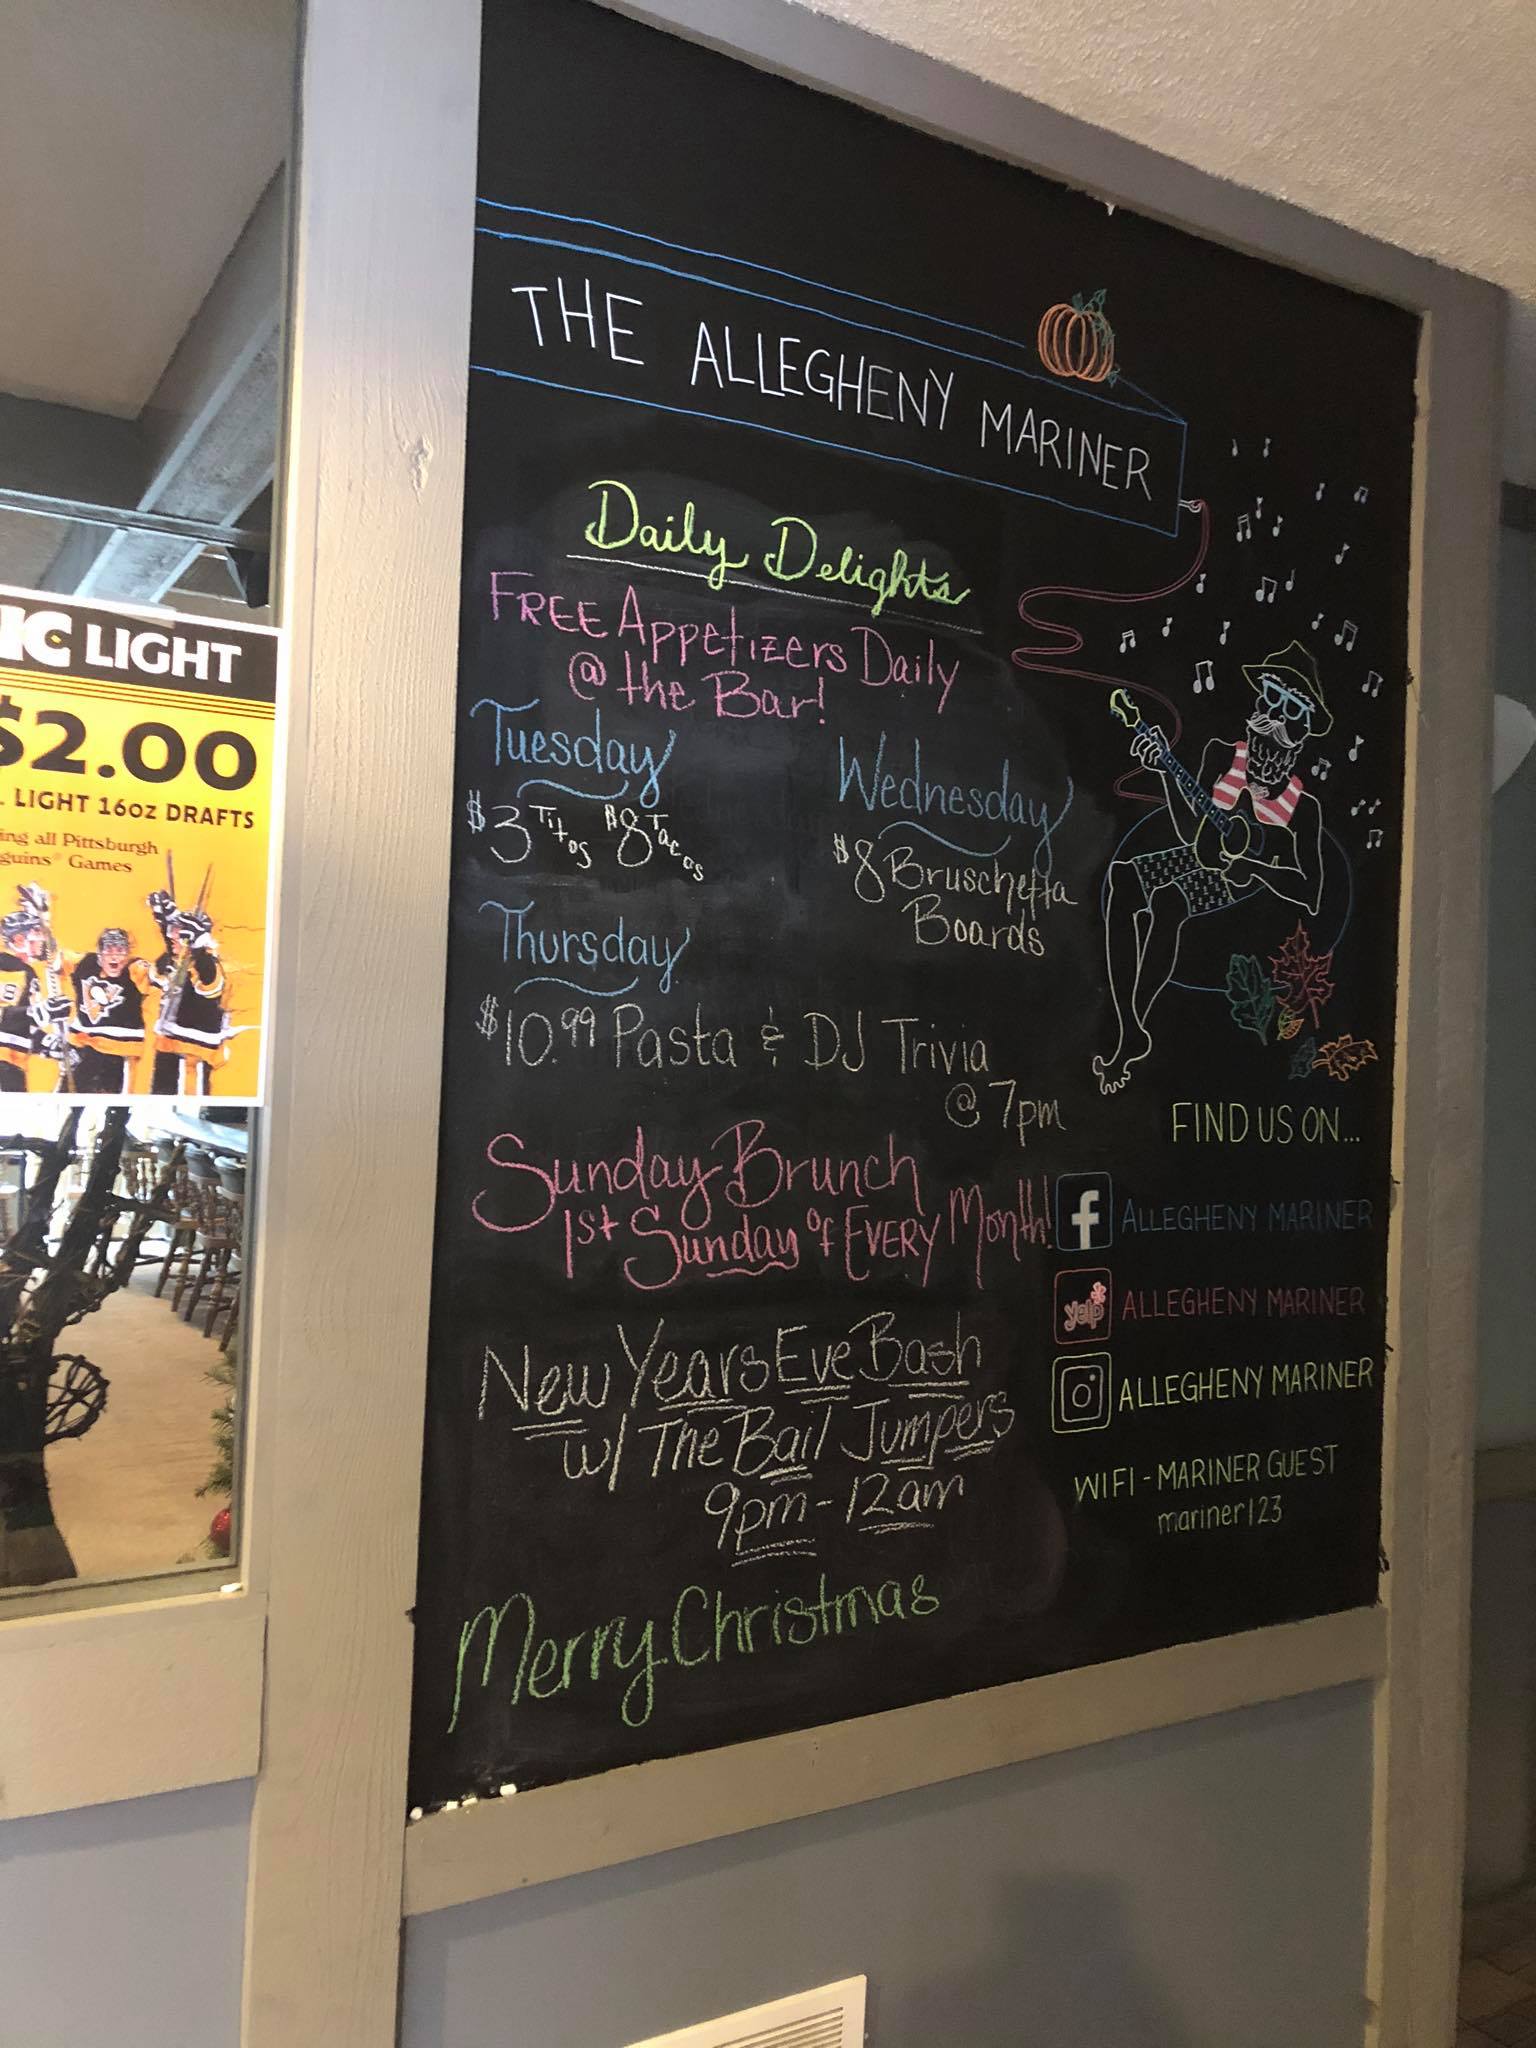 THE ALLEGHENY MARINER
Daily Delights
FREE Appetizers Daily
@ the Bar!
Tuesday
$3 Titos $8 Tacos
Wednesday
$8 Bruschetta
Boards
Thursday
$10.99 Pasta & DJ Trivia
@ 7pm
Sunday Brunch
1st Sunday of EVERY Month!
New Years Eve Bash
w/ The Bail Jumpers
9pm - 12am
Merry Christmas
FIND US ON...
f ALLEGHENY MARINER
yelp ALLEGHENY MARINER
ALLEGHENY MARINER
WIFI - MARINER GUEST
mariner123
IC LIGHT
$2.00
LIGHT 16oz DRAFTS
ing all Pittsburgh
guins® Games